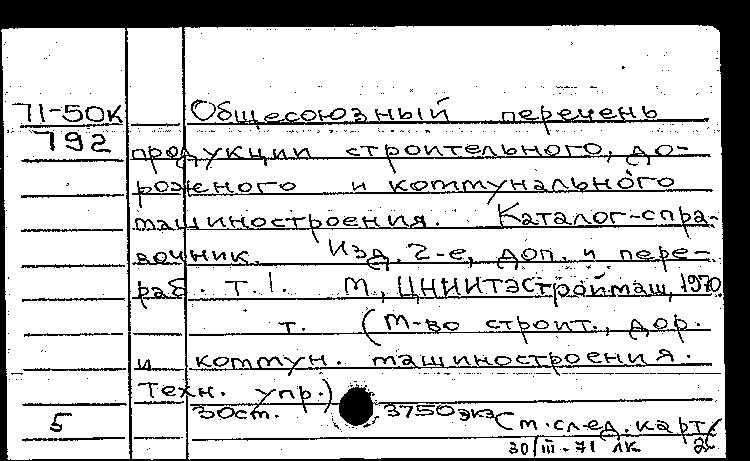 71-50К Общесоюзный перечень
792 продукции строительного, до-
рожного и коммунального
машиностроения. Каталог-спра-
вочник. Изд. 2-е, доп. и пере-
раб. Т.1. М., ЦНИИТЭстроймаш, 1970.
т. (М-во строит., дор.
и коммун. машиностроения.
Техн. упр.)
5 30ст. 3750экз См.след.карт
30/III-71 ЛК